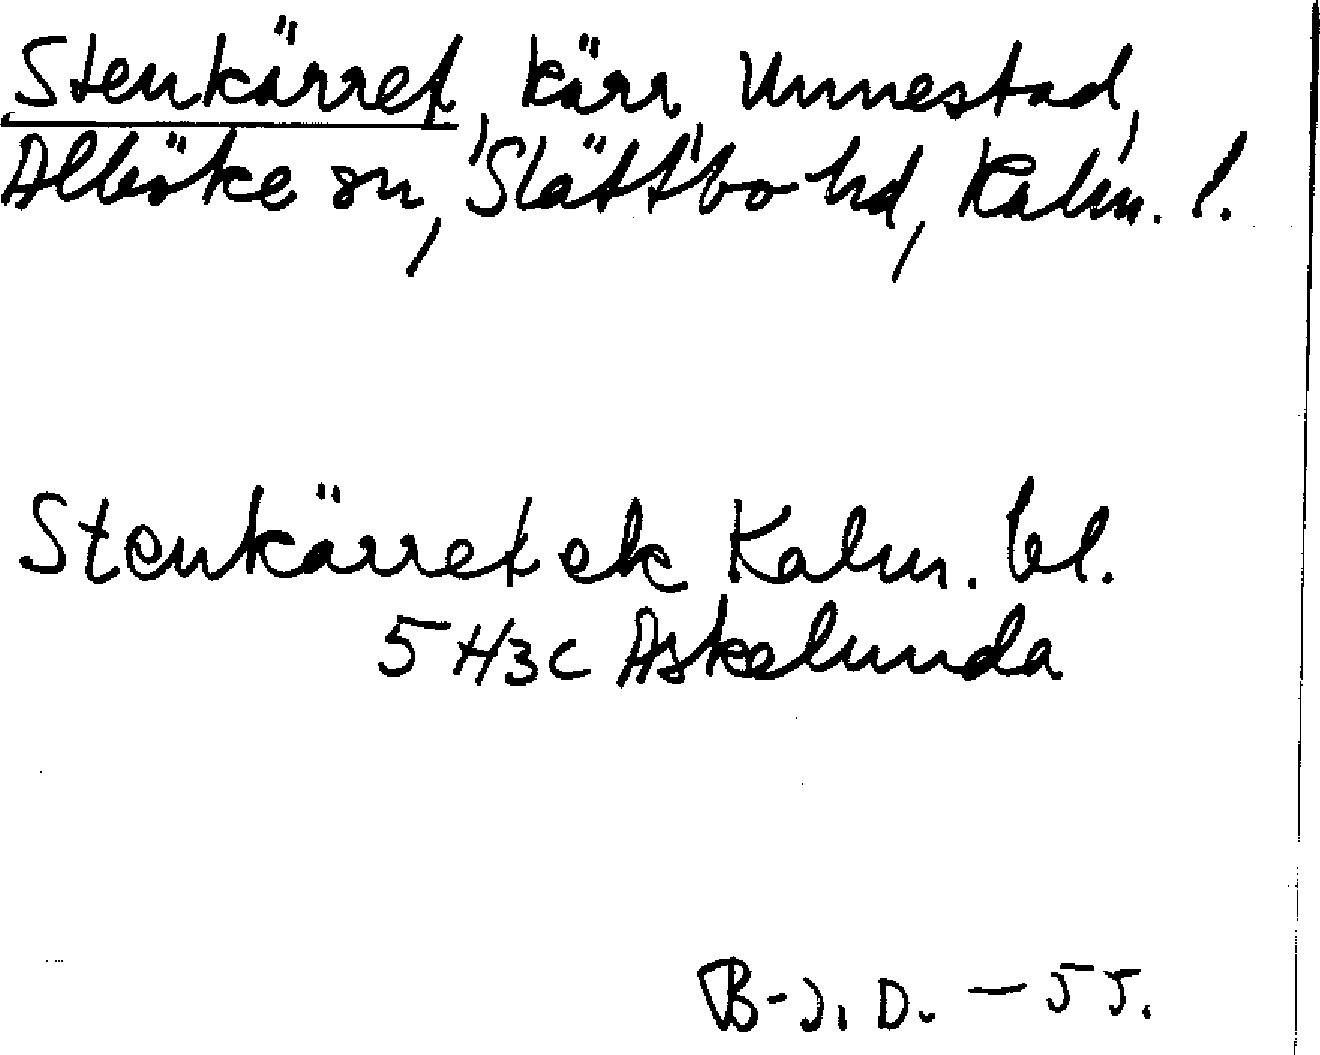 Stenkärret, kärr, Unnestad,
Alböke sn, Slättbo hd, Kalm. l.
Stenkärret ek Kalm. bl.
5H3C Askelunda
B-J. D. -55.